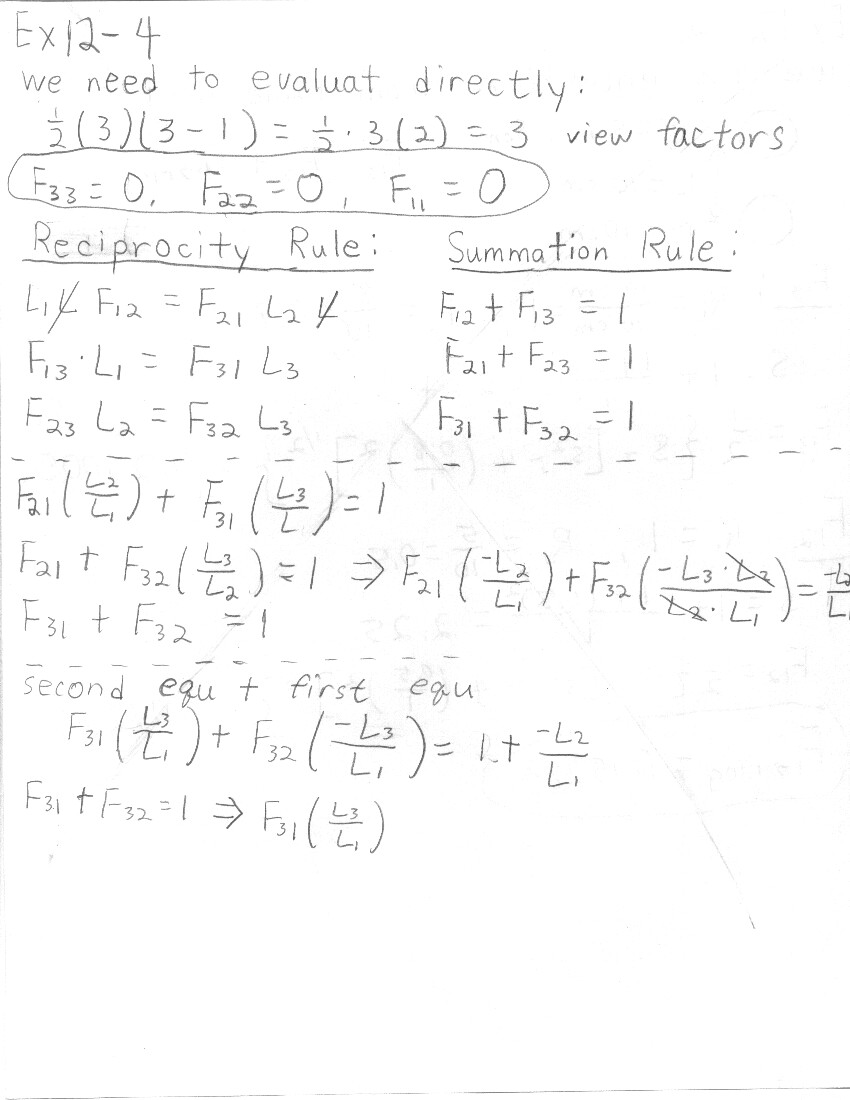 Ex12-4
we need to evaluat directly:
½(3)(3-1) = ½·3(2) = 3 view factors
F₃₃ = 0, F₂₂ = 0, F₁₁ = 0
Reciprocity Rule: Summation Rule:
L₁L F₁₂ = F₂₁ L₂ L F₁₂ + F₁₃ = 1
F₁₃ · L₁ = F₃₁ L₃ F₂₁ + F₂₃ = 1
F₂₃ L₂ = F₃₂ L₃ F₃₁ + F₃₂ = 1
F₂₁(L₂/L₁) + F₃₁(L₃/L) = 1
F₂₁ + F₃₂(L₃/L₂) = 1 ⇒ F₂₁(-L₂/L₁) + F₃₂(-L₃·L₂/L₂·L₁) = -L₂/L₁
F₃₁ + F₃₂ = 1
second equ + first equ
F₃₁(L₃/L₁) + F₃₂(-L₃/L₁) = 1 + -L₂/L₁
F₃₁ + F₃₂ = 1 ⇒ F₃₁(L₃/L₁)